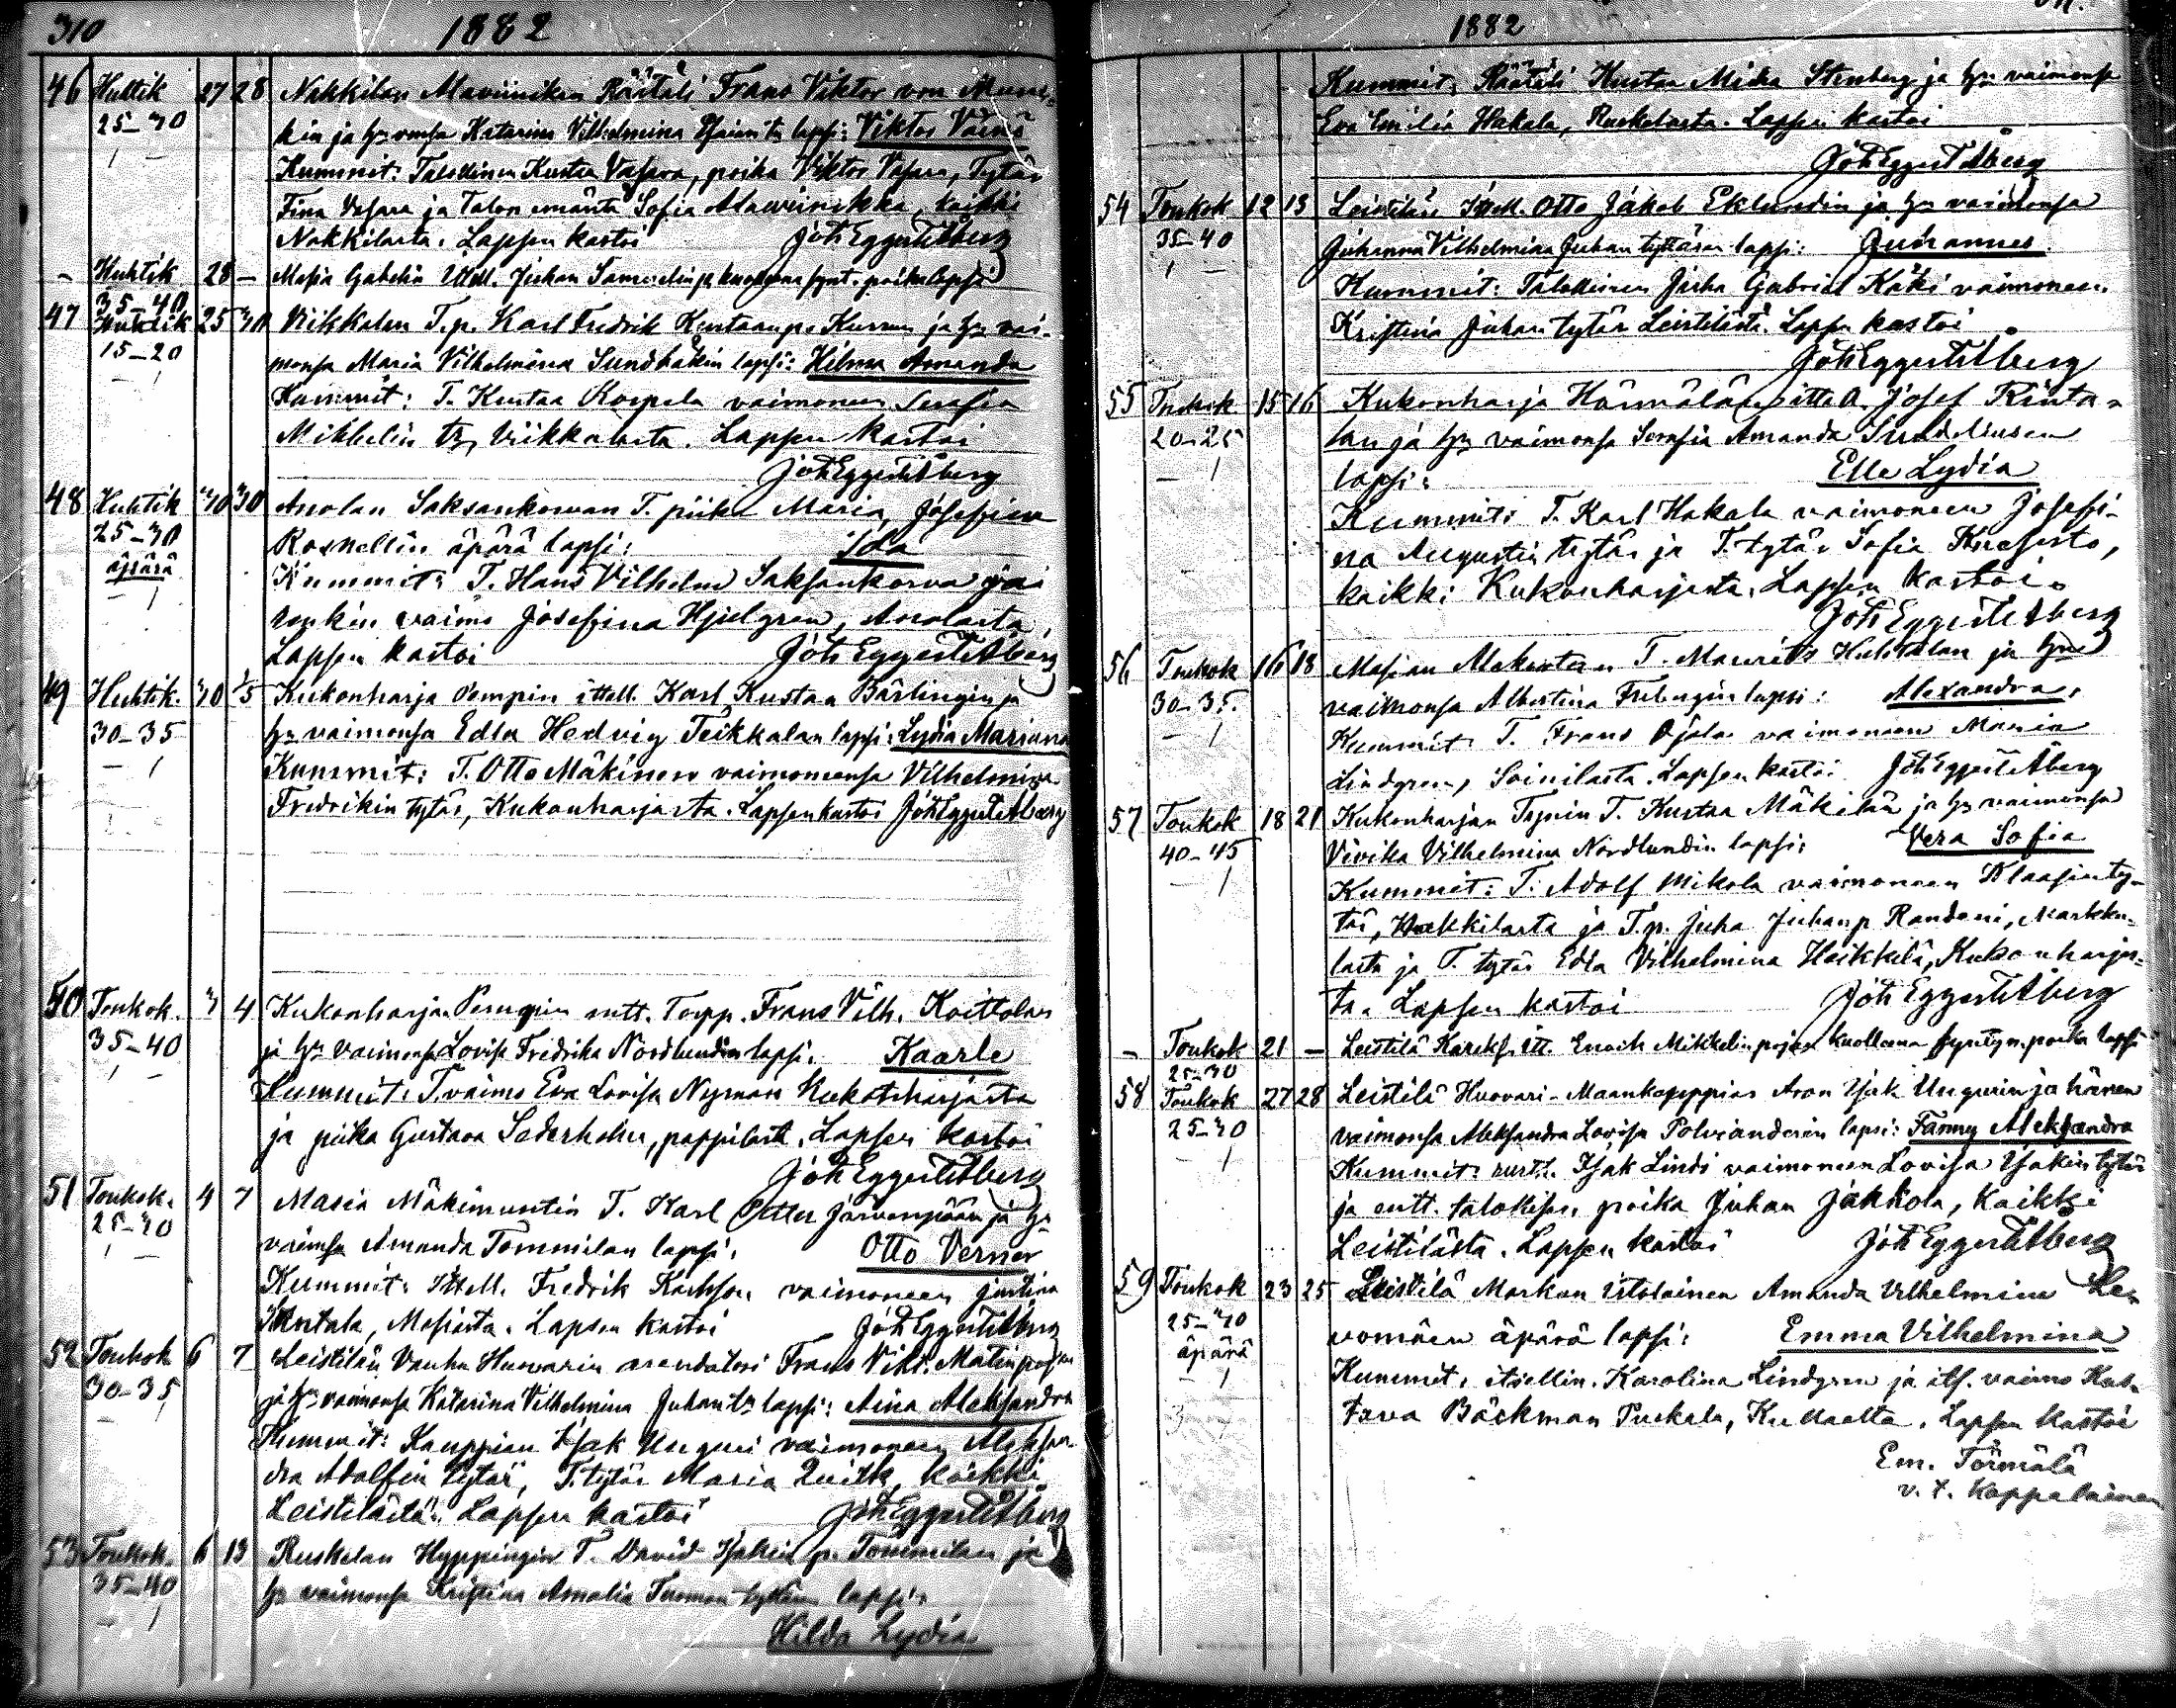 310
1882
46 Huhtik 27 28 Nakkilan Raatali Frans Viktor von
25-30 kin ja hn vmsa Katarina Vilhelmina lapsi: Viktor Väinö
Kummit: Talollinen Kustaa Vasara, poika Viktor Vasara, Tytär
Fina Vasara ja Talon emäntä Sofia kaikki
Nakkilasta. Lapsen kastoi Joh Eggert Åberg
- Huhtik 28 - Masia Ittell. Juhan poika lapsi
35-40
47 Huhtik 25 30 Viikkalan T.p. Karl Fredrik ja hn vai-
15-20 monsa Maria Vilhelmina lapsi: Hilma Amanda
Kummit: T. Kustaa Korpela vaimoneen Serafia
Mikkelin tr, Viikkalasta. Lapsen kastoi
Joh Eggert Åberg
48 Huhtik 30 30 Anolan Saksankorvan T. piika Maria Josefina
25-30 Rosnellin äpärä lapsi: Ida
äpärä Kummit: T. Hans Vilhelm Saksankorva ja
renkin vaimo Josefina Hjelgren, Anolasta
Lapsen kastoi Joh Eggert Åberg
49 Huhtik. 30 1/5 Kukonharja Pempin ittell. Karl Kustaa Bärlingin ja
30-35 hn vaimonsa Edla Hedvig Teikkalan lapsi: Lydia Mariana
Kummit: T. Otto Mäkinen vaimoneensa Vilhelmina
Fredrikin tytär, Kukonharjasta. Lapsen kastoi Joh Eggert Åberg
50 Toukok. 3 4 Kukonharjan Pempin entt. Torpp. Frans Vilh. Koittolan
35-40 ja hn vaimonsa Lovisa Fredrika Nordlundin lapsi. Kaarle
Kummit: T. vaimo Eva Lovisa Nyman Kukonharjasta
ja piika Gustava Sederholm, pappilasta. Lapsen kastoi
Joh Eggert Åberg
51 Toukok. 4 7 Masia Mäkimuntin T. Karl Petter Järvenpään ja hn
25-30 vaimsa Amanda Tommilan lapsi. Otto Verner
Kummit: Ittell. Fredrik vaimoneen Justina
Masiasta. Lapsen kastoi Joh Eggert Åberg
52 Toukok. 6 7 Leistilän Vanha Huovarin arendatori Frans Vikt. Matinpojan
30-35 ja hn vaimonsa Katarina Vilhelmina Juhan tr lapsi: Aina Aleksandra
Kummit: Kauppias Isak Unguri vaimoneen Aleksan-
dra Adolfin tytär, T. tytär Maria Quist, kaikki
Leistilästä. Lapsen kastoi Joh Eggert Åberg
53 Toukok. 6 13 Ruskelan Hyppingin T. David Isakin p. Tommilan ja
35-40 hn vaimonsa Kristina Amalia Tuomon tyttären lapsi:
Hilda Lydia
1882
Kummit: Räätäli Kustaa Mikla Stenberg ja hn vaimonsa
Eva Emilia Hakala, Ruskelasta. Lapsen kastoi
Joh Eggert Åberg
54 Toukok 12 13 Leistilän Ittell. Otto Jakob Eklundin ja hn vaimonsa
35-40 Juhanna Vilhelmina Juhan tyttären lapsi: Juhannes.
Kummit: Talollinen Juha Gabriel Käki vaimoneen
Kristina Juhan tytär Leistilästä. Lapsen kastoi
Joh Eggert Åberg
55 Toukok. 15 16 Kukonharja Hännälän itte Josef Rinta-
20-25 lan ja hn vaimonsa Serafia Amanda
lapsi: Elle Lydia
Kummit: T. Karl Hakala vaimoneen Josefi-
na Augustin tytär ja T. tytär Sofia
kaikki Kukonharjasta. Lapsen kastoi.
Joh Eggert Åberg
56 Toukok 16 18 Masian T. Maurits Huhtalan ja hn
30-35. vaimonsa Albertina lapsi: Alexandra.
Kummit: T. Frans Ojala vaimoneen Maria
Lindgren, Soinilasta. Lapsen kastoi Joh Eggert Åberg
57 Toukok 18 21 Kukonharjan T. Kustaa Mäkilän ja hn vaimonsa
40-45 Vivika Vilhelmina Nordlundin lapsi: Vera Sofia
Kummit: T. Adolf Mikola vaimoneen Klaasin ty-
tär, Nakkilasta ja T.p. Juha Juhan p. Randeni,
lasta ja T. tytär Edla Vilhelmina Heikkilä, Kukonharjas-
ta. Lapsen kastoi Joh Eggert Åberg
- Toukok 21 - Leistilä itt. Enoch Mikkelin pojan kuolleena poika lapsi
25-30
58 Toukok 27 28 Leistilä Huovari Maankauppias Aron Isak Ungurin ja hänen
25-30 vaimonsa Aleksandra Lovisa Polviandrin lapsi: Fanny Aleksandra
Kummit: Isak Lindi vaimoneen Lovisa Isakin tytär
ja entt. talokkaan poika Juhan Jakkola, kaikki
Leistilästä. Lapsen kastoi Joh Eggert Åberg
59 Toukok 23 25 Leistilä Markun itsläinen Amanda Vilhelmina Le-
25-30 vomäen äpärä lapsi: Emma Vilhelmina
äpärä Kummit: itsellin. Karolina Lindgren ja its. vaimo Kus-
tava Bäckman Puskala, Kullaalta. Lapsen kastoi
Em. Törmälä
v. t. kappalainen